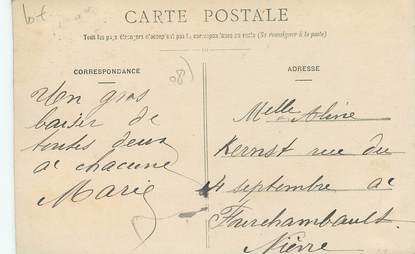 CARTE POSTALE
Tous les pays étrangers n'acceptent pas la correspondance au recto (Se renseigner à la poste)
CORRESPONDANCE
ADRESSE
Un gros
baiser de
toutes deux
a chacune
Marie
Melle Aline
Kernst rue du
4 septembre a
Fourchambault
Nièvre